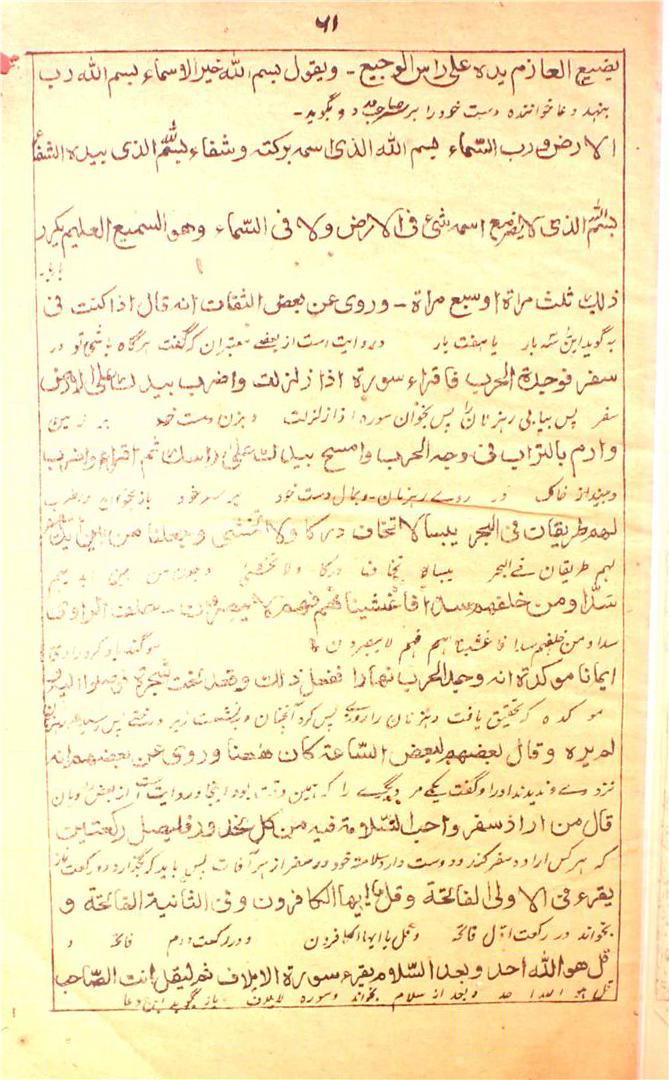 ۶۱
یضیع العازم یده علی راس الوجیع - ویقول بسم الله خیر الاسماء بسم الله رب
بنهد دعا خواننده دست خود را بر سر صاحب درد و بگوید -
الارض ورب السماء بسم الله الذی اسمه برکته وشفاء بسم الله الذی بیده الشفاء
بسم الله الذی لا یضر مع اسمه شیء فی الارض ولا فی السماء وهو السمیع العلیم یکرر
ذلک ثلث مراة او سبع مراة - وروی عن بعض الثقات انه قال اذا کنت فی
بگوید این سه بار یا هفت بار در روایت است از بعضے معتبران که گفت هرگاه باشی تو در
سفر فوجدة الحرب فاقراء سورة اذا زلزلت واضرب بیدک علی الارض
سفر پس بیابی رهزنان را پس بخوان سوره اذا زلزلت و بزن دست خود بر زمین
وارم بالتراب فی وجه الحرب وامسح بیدک علی راسک ثم اقراء واضرب
در روے رهزنان - و بمال دست خود بر سر خود باز بخوان واضرب
لهم طریقات فی البحر یبسا لا تخاف درکا ولا تخشی وجعلنا من بین
لهم طریقان فے البحر یبسا لا تخاف درکا ولا تخشی وجعلنا من بین ایدیهم
سدا ومن خلفهم سدا فاغشیناهم فهم لا یبصرون - حلف الراوی
سدا ومن خلفهم سدا فاغشیناهم فهم لا یبصرون سوگند یاد کرد راوی
ایمانا موکدة انه وجد الحرب نهارا ففعل ذلک وقعد تحت شجرة
موکده که تحقیق یافت رهزنان را روزے پس کرد آنچنان و نشست زیر درختے پس
لم یره وقال بعضهم لبعض الساعة کان ههنا وروی عن بعضهم انه
نزد وے و ندیدند او را و گفت یکے مر دیگرے را که همین وقت بود اینجا و روایت است از بعض اوشان
قال من اراد سفر واحب السلامة فیه من کل محذور فلیصل رکعتین
که هر کس اراده سفر کند و دوست دارد سلامت خود در سفر از هر آفات پس باید که بگزارد دو رکعت نماز
یقرء فی الاولی الفاتحة وقل یا ایها الکافرون وفی الثانیة الفاتحة و
بخواند در رکعت اول فاتحه و قل یا ایها الکافرون و در رکعت دوم فاتحه و
قل هو الله احد وبعد السلام یقرء سورة الایلاف ثم لیقل انت الصاحب
قل هو الله احد و بعد از سلام بخواند سوره لایلاف باز بگوید این دعا